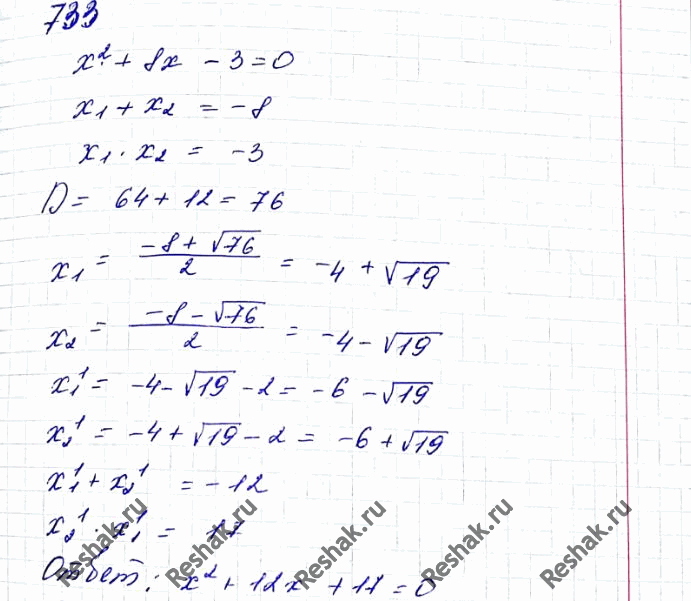 733
x² + 8x - 3 = 0
x₁ + x₂ = -8
x₁ · x₂ = -3
D = 64 + 12 = 76
x₁ = (-8 + √76)/2 = -4 + √19
x₂ = (-8 - √76)/2 = -4 - √19
x₁¹ = -4 - √19 - 2 = -6 - √19
x₂¹ = -4 + √19 - 2 = -6 + √19
x₁¹ + x₂¹ = -12
x₂¹ · x₁¹ = 17
Ответ: x² + 12x + 17 = 0
Reshak.ru Reshak.ru Reshak.ru Reshak.ru Reshak.ru